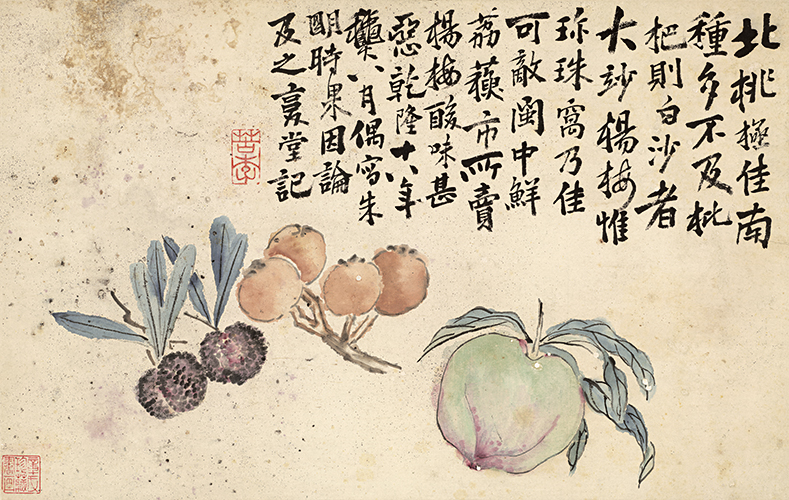 北桃極佳南
種多不及枇
杷則白沙者
大妙楊梅惟
珎珠窩乃佳
可敵閩中鮮
荔市所賣
楊梅酸味甚
惡乾隆十八年
八月偶寫朱
明時果因論
及之复堂記
苦李